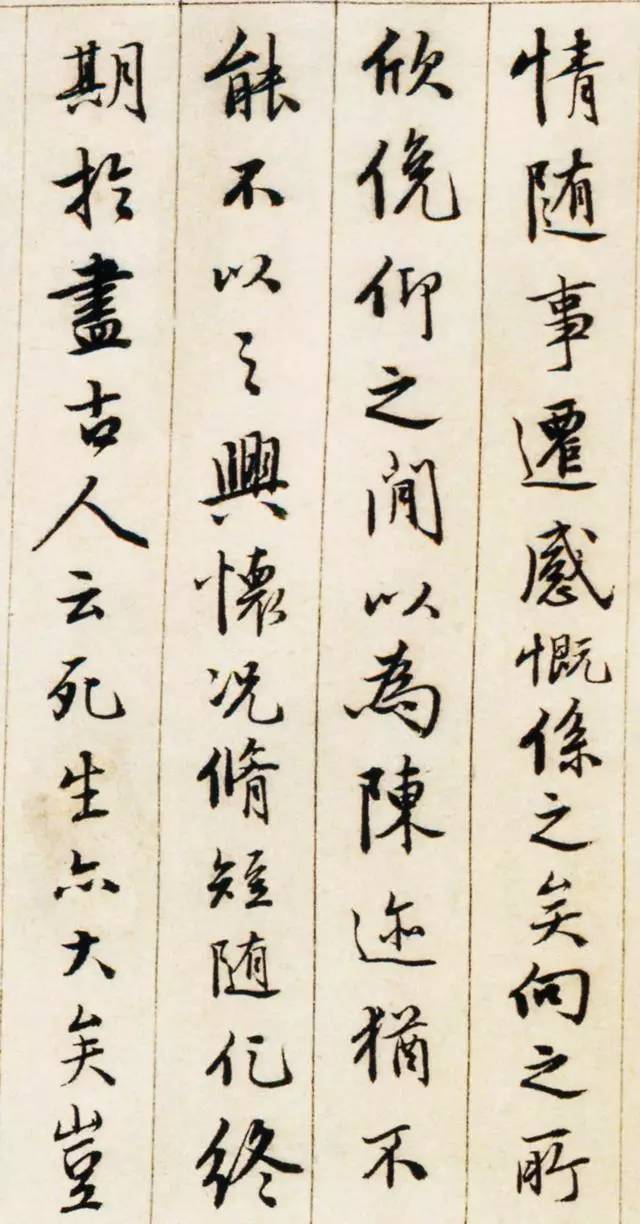 情随事遷感慨係之矣向之所
欣俛仰之間以為陳迹猶不
能不以之興懷况脩短随化終
期於盡古人云死生亦大矣豈